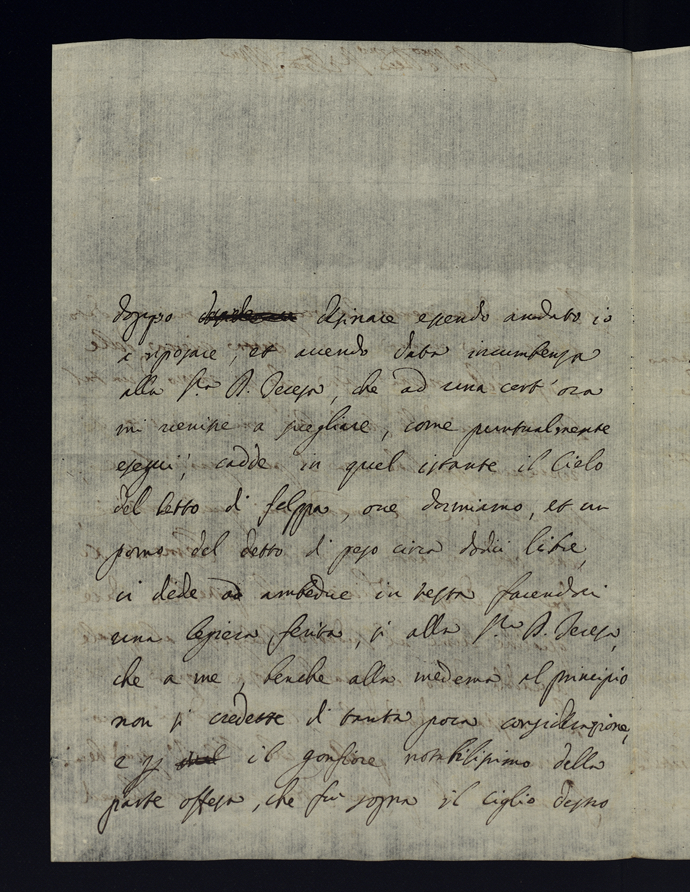 doppo desinare essendo andato io
a riposare, et avendo data incumbenza
alla S.ra D. Teresa, che ad una cert'ora
mi venisse a svegliare, come puntualmente
eseguì, cadde in quel istante il Cielo
del Letto di felppa, ove dormiamo, et un
pomo del detto di peso circa dodici libre,
ci diede ad ambedue in testa facendoci
una legiera ferita, sì alla S.ra D. Teresa,
che a me, benche alla medema al principio
non si credesse di tanta poca considerazione,
e p il gonfiore notabilissimo della
parte offesa, che fu sopra il ciglio destro,